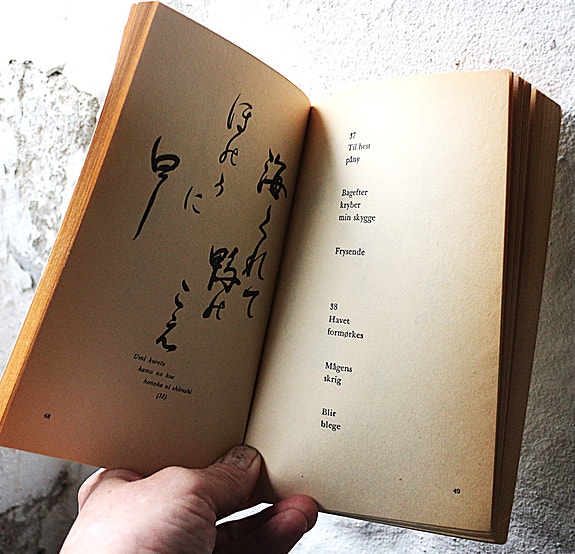 海くれて
鴨の
こゑ
ほのかに
白し
Umi kurete
kamo no koe
honoka ni shiroshi
(38)
48
37
Til hest
påny
Bagefter
kryber
min skygge
Frysende
38
Havet
formørkes
Mågens
skrig
Blir
blege
49